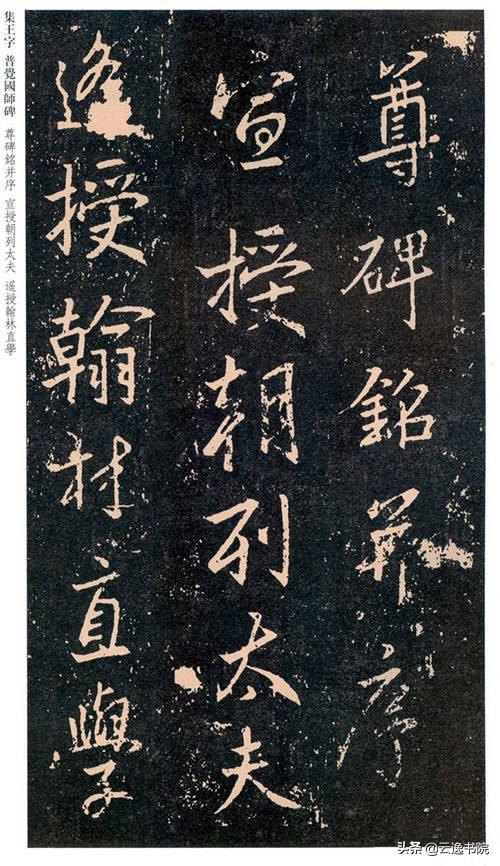 尊碑銘并序
宣授朝列太夫
遥授翰林直學
集王字 普覺國師碑 尊碑銘并序 宣授朝列太夫 遥授翰林直學
头条 @云逸书院